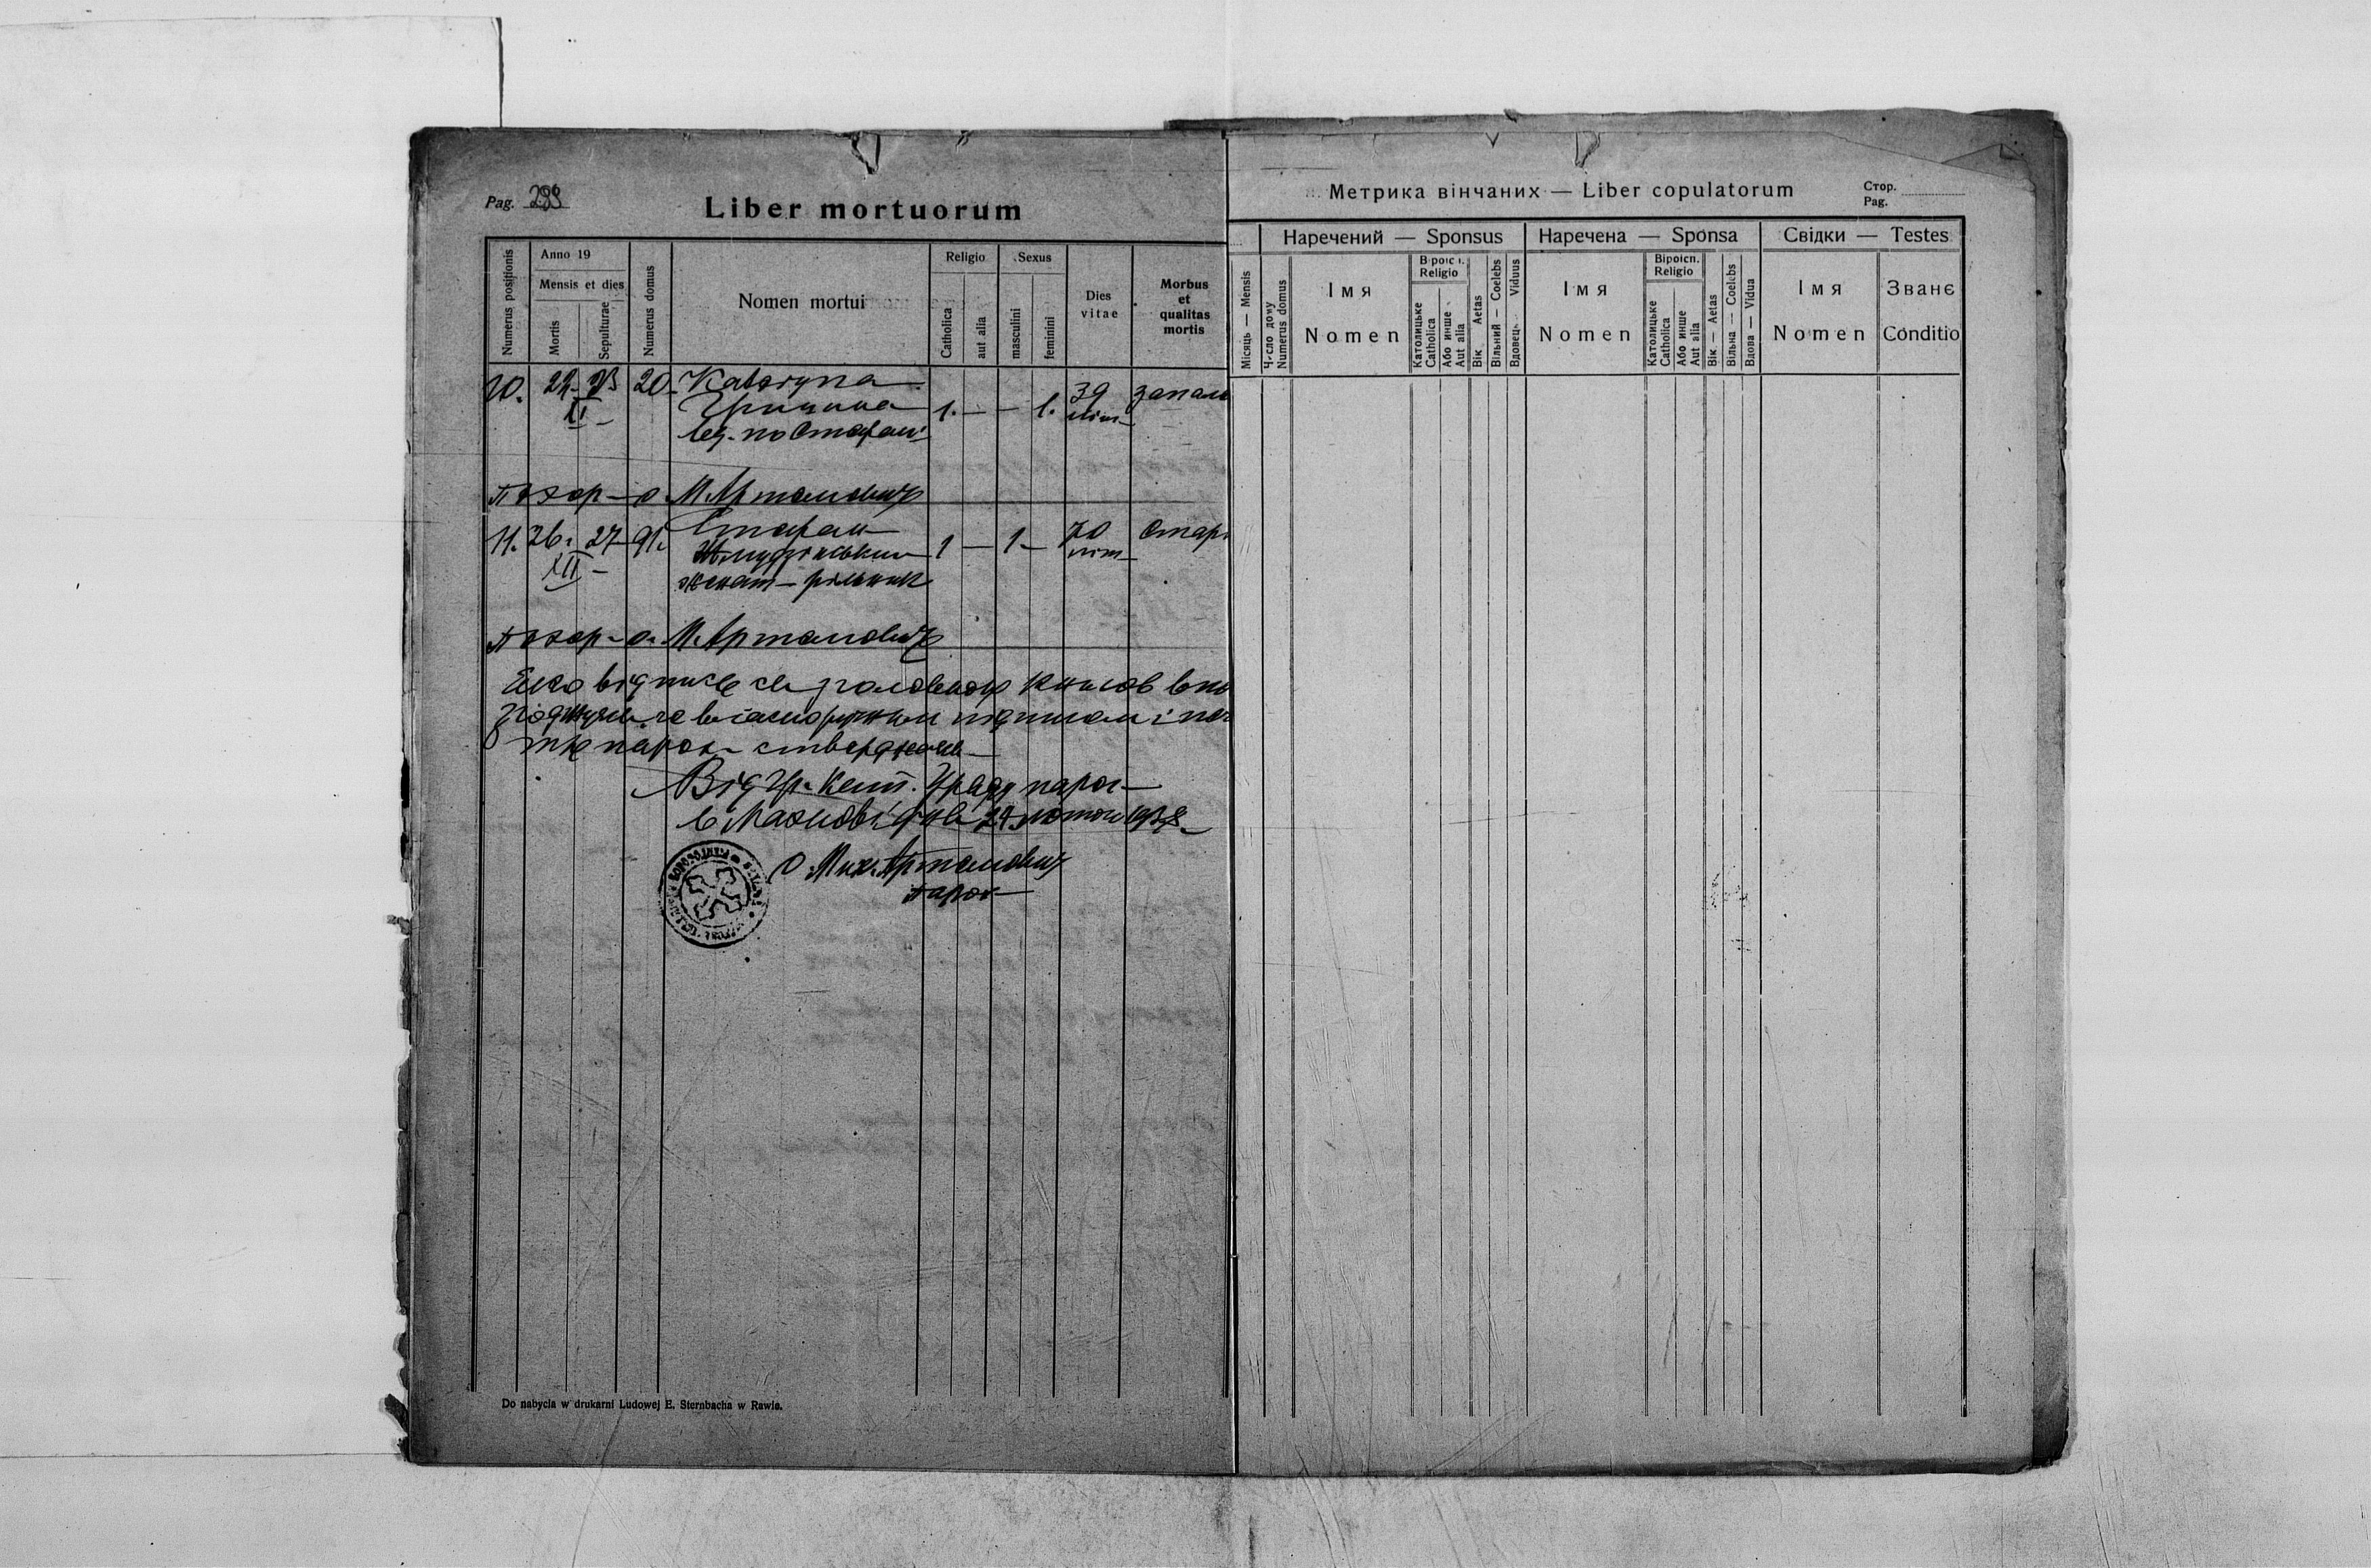 Pag. 233
Liber mortuorum
Numerus positionis
Anno 19
Mensis et dies
Mortis
Sepulturae
Numerus domus
Nomen mortui
Religio
Catholica
aut alia
Sexus
masculini
feminini
Dies
vitae
Morbus
et
qualitas
mortis
10. 22. 23 20. Kataryna
XI Грицина 1. — — 1. 39 запал
вд. по Стафані літ
Похор. о. М. Артамович
11. 26. 27 91. Стафан 1 — 1 — 70 Стар
XII літ
жонат — рільник
Похор. о. М. Артамович
відпись зі головною книгов
підписом і
парох. стверджаю
Від Гр. Кат. Уряду парох.
в Махнові дня 24 лютого 1938
о. Мих. Артамович
парох
Do nabycia w drukarni Ludowej E. Sternbacha w Rawie.
Метрика вінчаних — Liber copulatorum
Стор.
Pag.
Місяць — Mensis
Ч-сло дому
Numerus domus
Наречений — Sponsus
Імя
Nomen
Віроісп.
Religio
Католицьке
Catholica
Або инше
Aut alia
Вік Aetas
Вільний — Coelebs
Вдовець Viduus
Наречена — Sponsa
Імя
Nomen
Віроісп.
Religio
Католицьке
Catholica
Або инше
Aut alia
Вік — Aetas
Вільна — Coelebs
Вдова — Vidua
Свідки — Testes
Імя
Nomen
Званє
Conditio